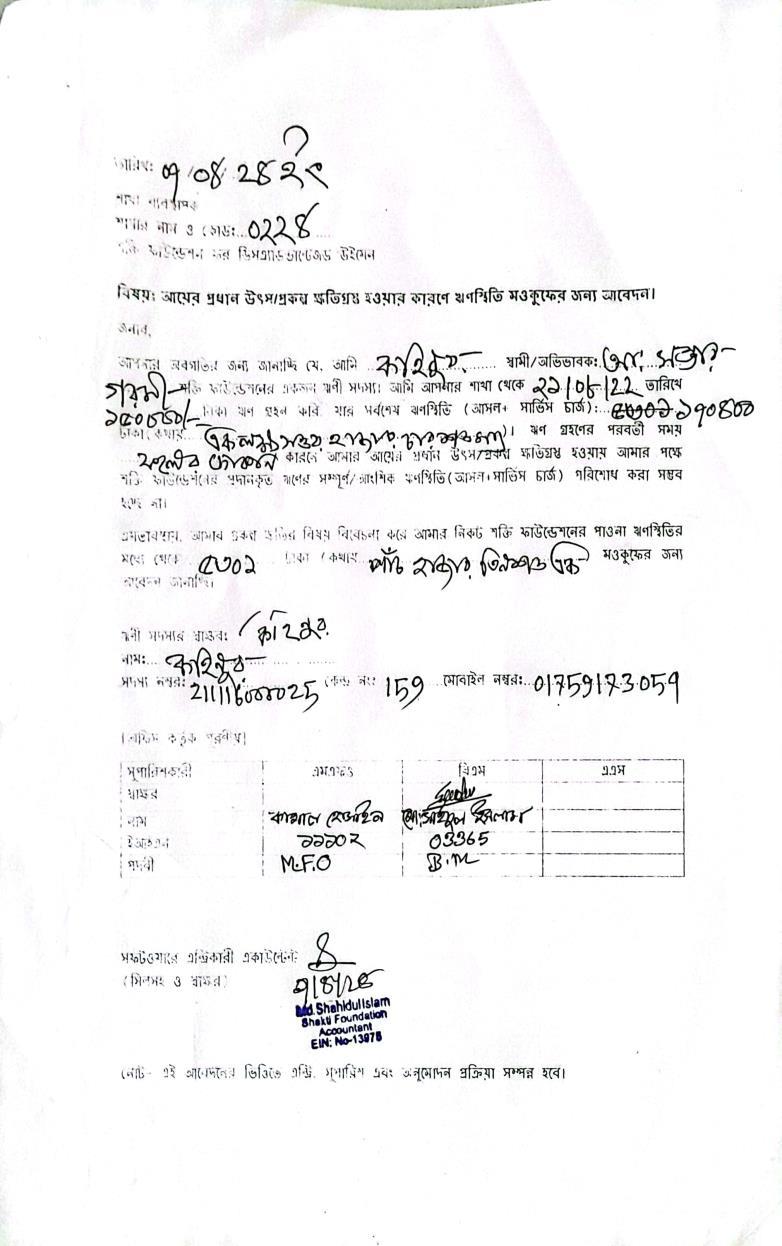 তারিখ: ০৭/০৪/২৪ ইং
শাখা ব্যবস্থাপক
শাখার নাম ও কোড:...০২২৪
শক্তি ফাউন্ডেশন ফর ডিসএ্যাডভান্টেজড উইমেন
বিষয়: আয়ের প্রধান উৎস/প্রকল্প ক্ষতিগ্রস্থ হওয়ার কারণে ঋণস্থিতি মওকুফের জন্য আবেদন।
জনাব,
আপনার অবগতির জন্য জানাচ্ছি যে, আমি কহিনুর স্বামী/অভিভাবক: মো: সত্তার
গাজী শক্তি ফাউন্ডেশনের একজন ঋণী সদস্য। আমি আপনার শাখা থেকে তারিখে
১৫০০০০/- টাকা ঋণ গ্রহন করি যার সর্বশেষ ঋণস্থিতি (আসল+ সার্ভিস চার্জ): ১৭০৪০০
টাকা (কথায় এক লক্ষ সত্তর হাজার চারশত)। ঋণ গ্রহণের পরবর্তী সময়
কারনে আমার আয়ের প্রধান উৎস/প্রকল্প ক্ষতিগ্রস্থ হওয়ায় আমার পক্ষে
শক্তি ফাউন্ডেশনের প্রদানকৃত ঋণের সম্পূর্ণ/আংশিক ঋণস্থিতি(আসল+সার্ভিস চার্জ) পরিশোধ করা সম্ভব
হচ্ছে না।
এমতাবস্থায়, আমার প্রকল্প ক্ষতির বিষয় বিবেচনা করে আমার নিকট শক্তি ফাউন্ডেশনের পাওনা ঋণস্থিতির
মধ্যে থেকে ৫৩০১ টাকা (কথায় পাঁচ হাজার তিনশত এক মওকুফের জন্য
আবেদন জানাচ্ছি।
ঋণী সদস্যের স্বাক্ষর: কহিনুর
নাম:... কহিনুর
সদস্য নম্বর: 211116000025 কেন্দ্র নং: 159 মোবাইল নম্বর: 01759173059
[অফিস কর্তৃক পূরণীয়]
সুপারিশকারী এমএফও বিএম এএম
স্বাক্ষর
নাম কামাল হোসাইন মো: সাইদুল ইসলাম
ইআইএন ১১১০২ 03365
পদবী M.F.O B.M
সফটওয়ারে এন্ট্রিকারী একাউন্টেন্ট:
(সিলসহ ও স্বাক্ষর) ৭/৪/২৪
Md. Shahidul Islam
Shakti Foundation
Accountant
EIN: No-13975
নোট- এই আবেদনের ভিত্তিতে এন্ট্রি, সুপারিশ এবং অনুমোদন প্রক্রিয়া সম্পন্ন হবে।